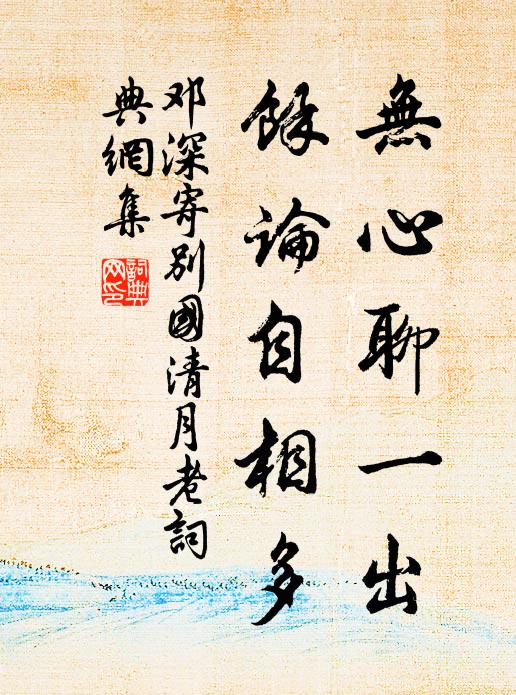 無心聊一出
餘論自相多
邓深寄别國清月老詞
典網集
詞典網印